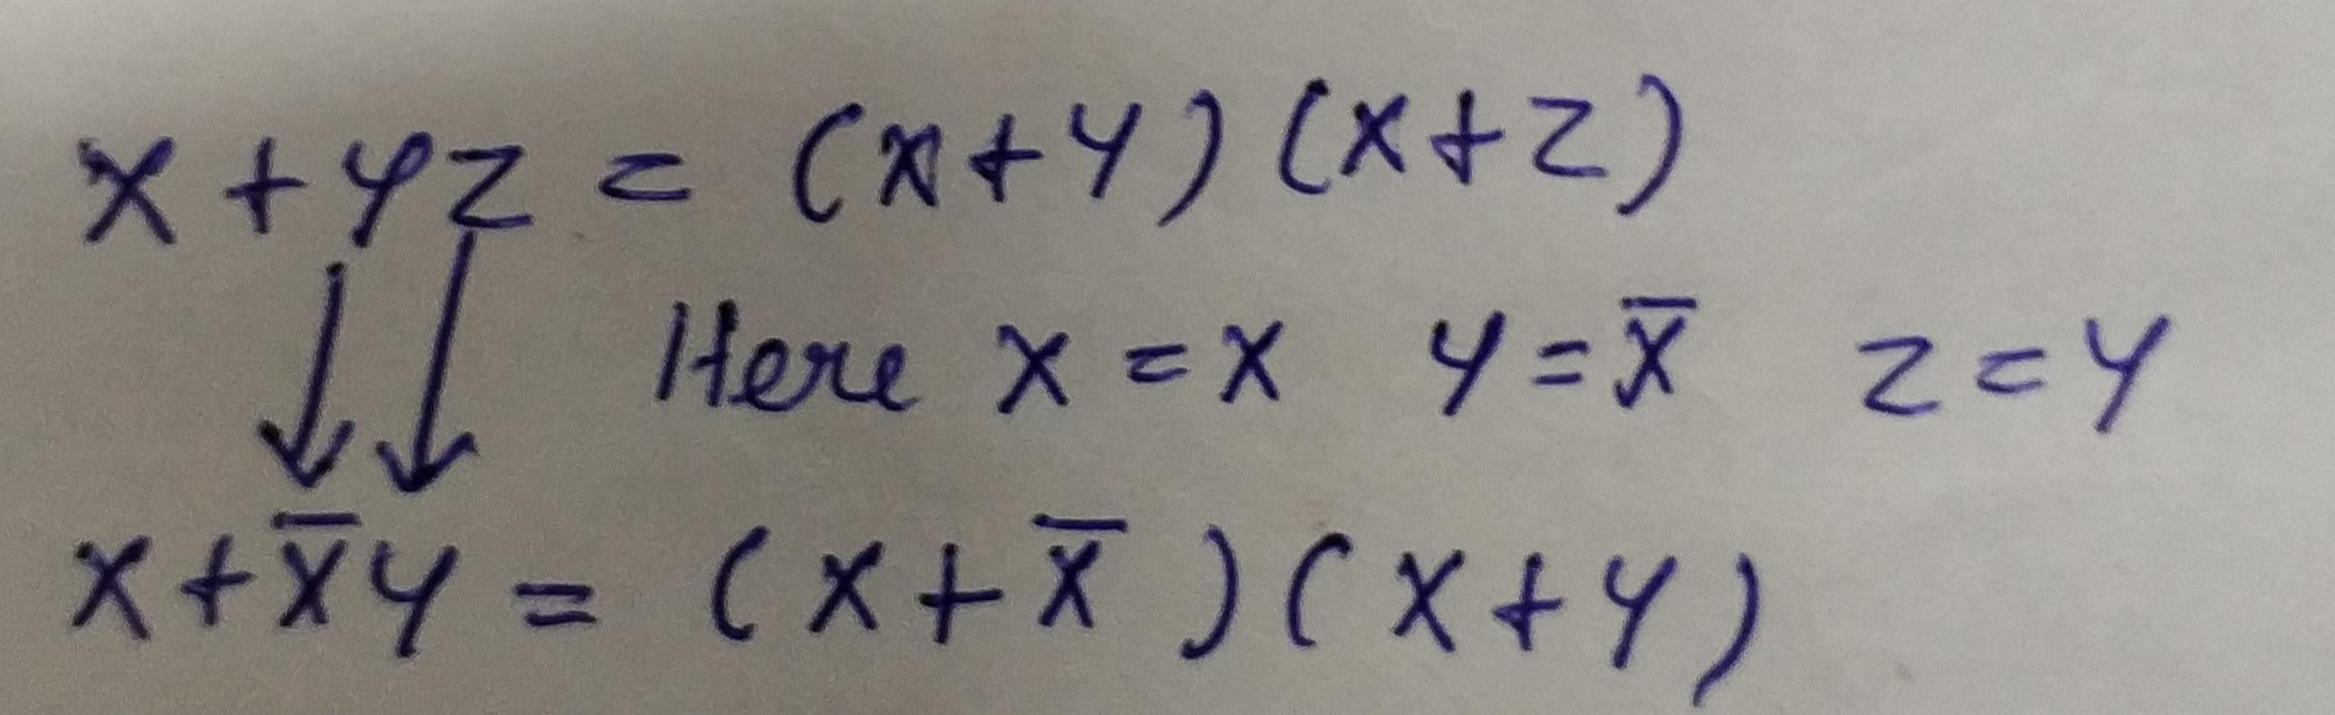 x + yz = (x+y) (x+z)
Here x = x y = x̅ z = y
x + x̅y = (x + x̅) (x + y)